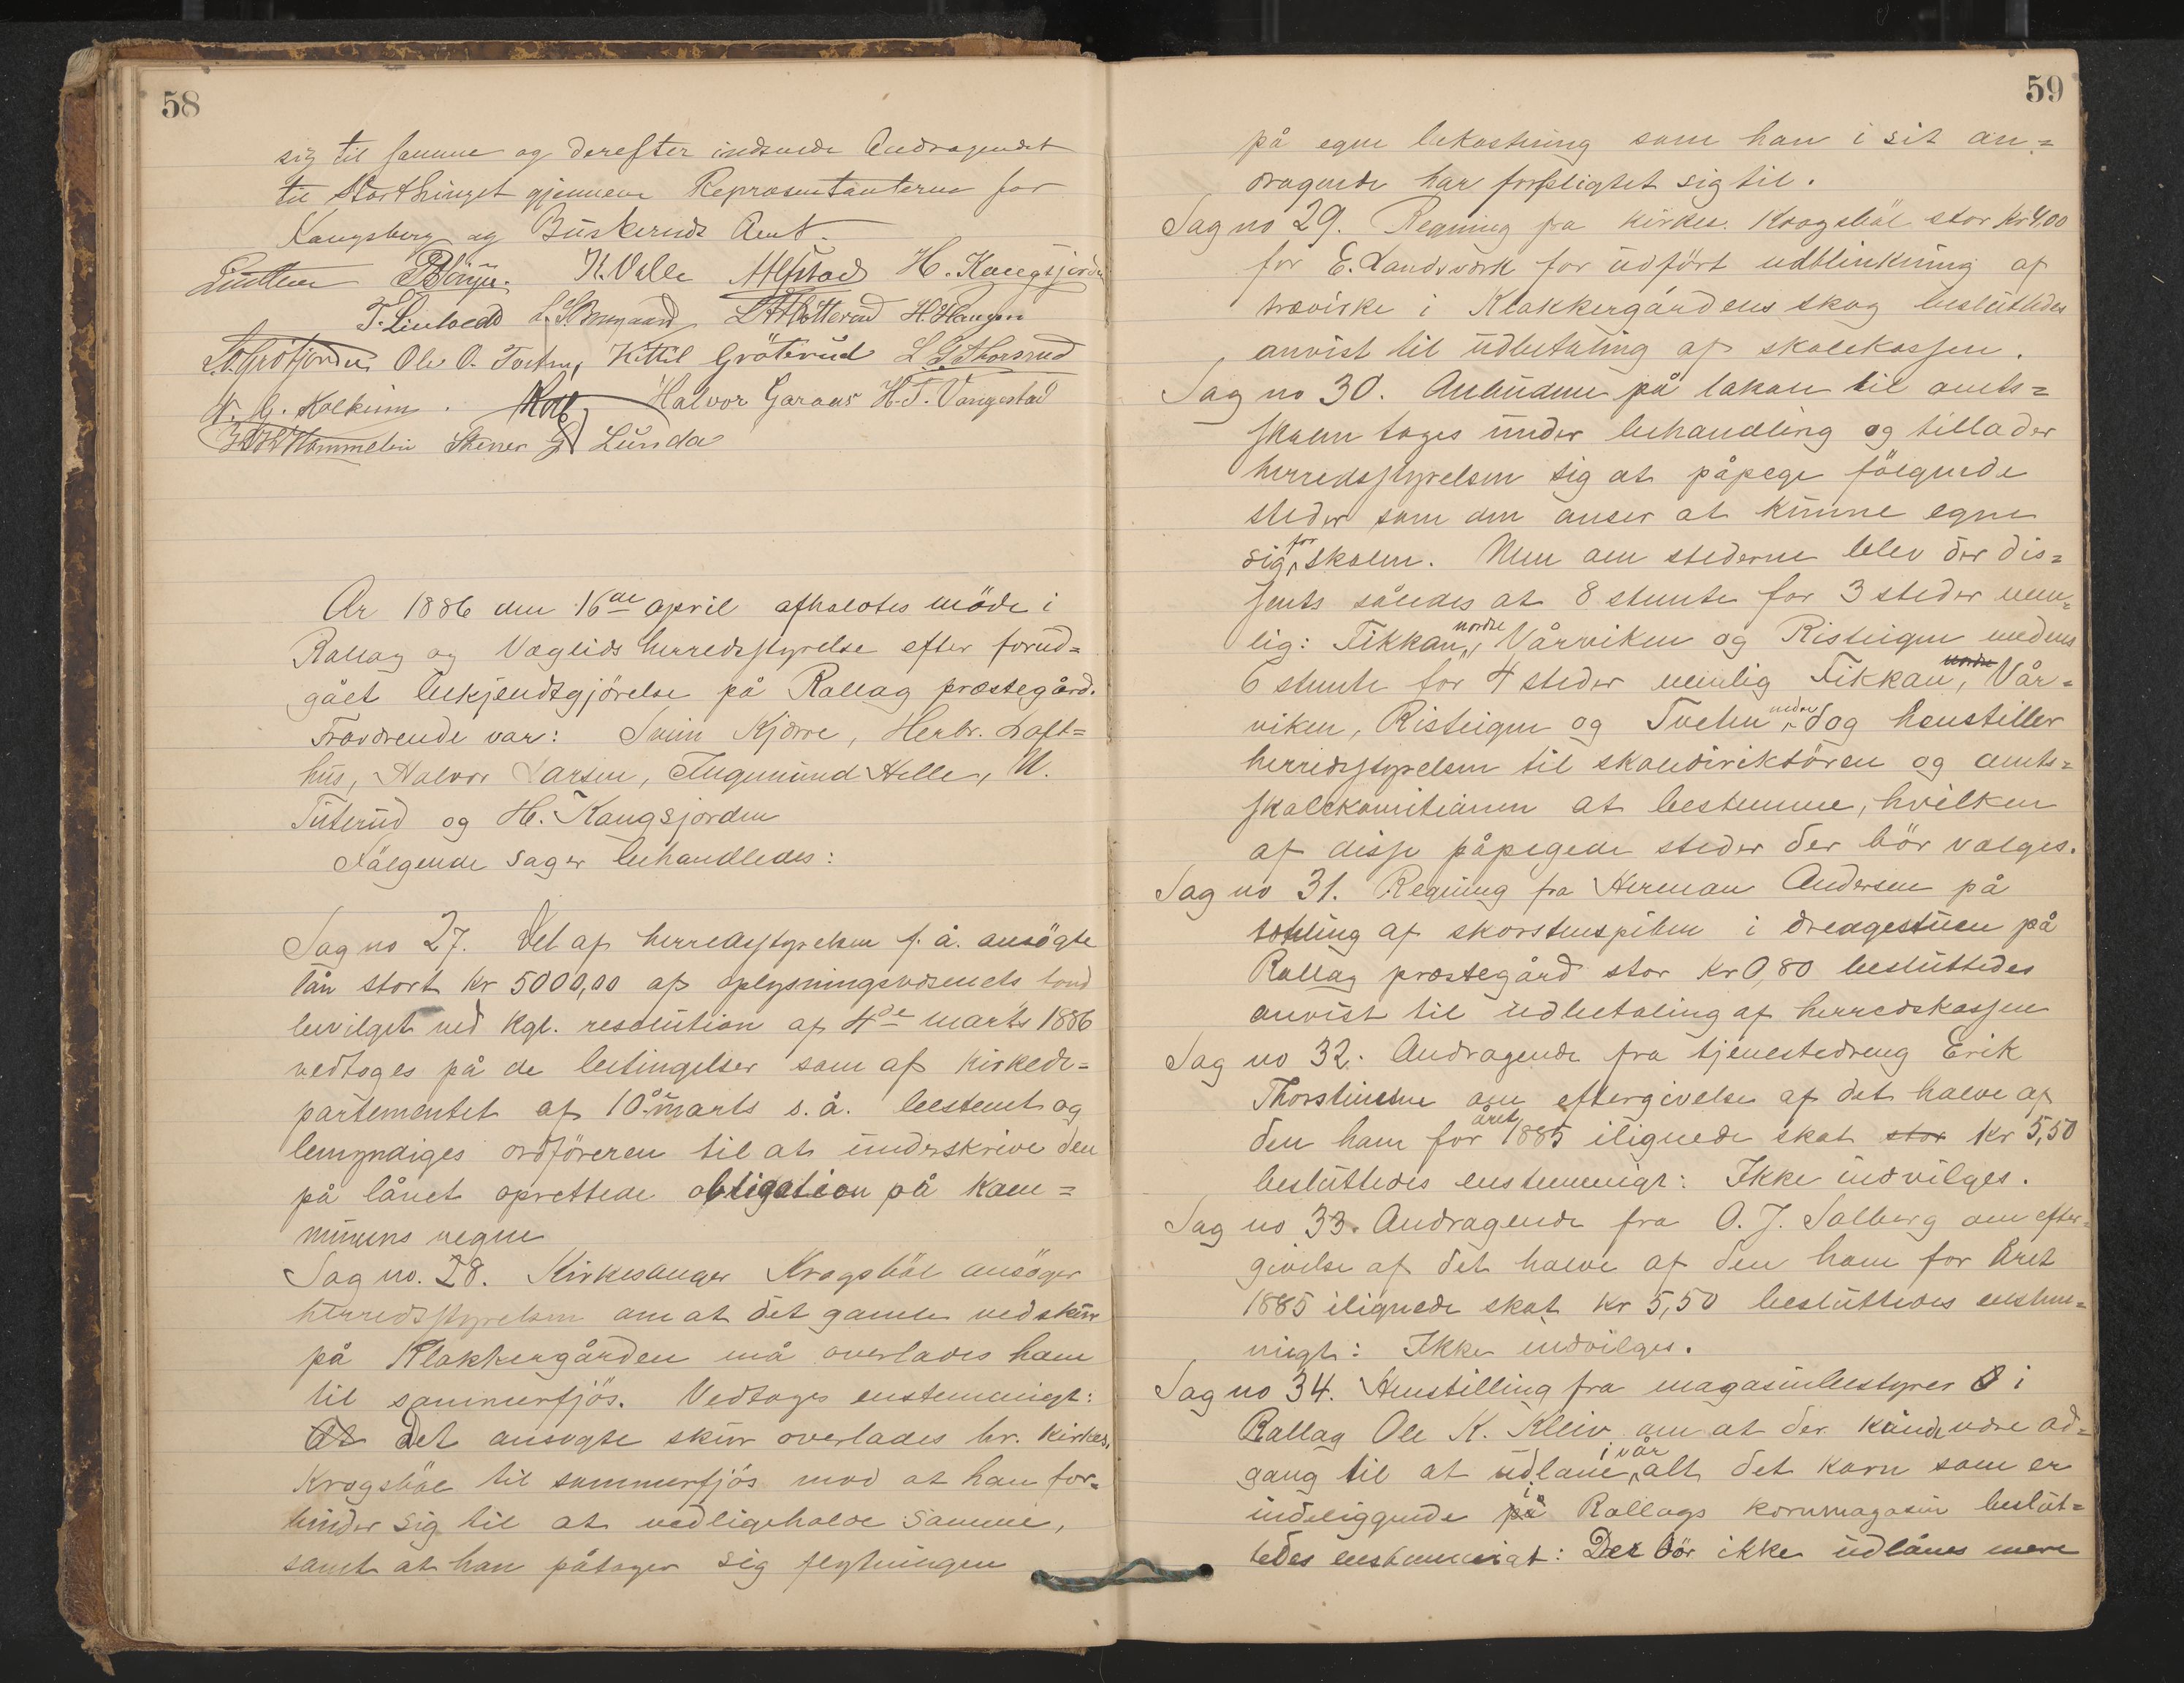 58
sig til samme og derefter indsende Andragendet
til Storthinget gjennem Repræsentanterne for
Kongsberg og Buskeruds Amt.
K. Velle H. Kongsjorden
H. Haugen
Ole O. Kittil Gröterud L. L. Thorsrud
Halvor Garaas H. T. Vangestad
Stener G Lunda
År 1886 den 16de april afholdtes möde i
Rollag og Væglids herredsstyrelse efter forud=
gået bekjendtgjörelse på Rollag præstegård.
Fraværende var: Svein Kjørre, Herbr. Loft=
hus, Halvor Larsen, Ingemund Helle, N.
Tuterud og H. Kongsjorden
Fölgende sager behandledes:
Sag no 27. Det af herredsstyrelsen f. å. ansögte
lån stort Kr 5000,00 af oplysningsvæsenets fond
bevilget ved kgl. resolution af 4de marts 1886
vedtoges på de betingelser som af kirkede=
partementet af 10de marts s. å. bestemt og
bemyndiges ordföreren til at underskrive den
på lånet oprettede obligation på kom=
munens vegne
Sag no. 28. Kirkesanger Krogsböl ansöger
herredsstyrelsen om at det gamle vedskur
på Klokkergården må overlades ham
til sommerfjös. Vedtoges enstemmigt:
At Det ansøgte skur overlades hr. kirkes.
Krogsböl til sommerfjös mod at han for=
binder sig til at vedligeholde samme,
samt at han påtager sig flytningen
59
på egen bekostning som han i sit an=
dragende har forpligtet sig til.
Sag no 29. Regning fra kirkes. Krogsböl stor kr 4,00
for E. Landsværk for udfört udblinkning af
trævirke i Klokkergårdens skog besluttedes
anvist til udbetaling af skolekassen.
Sag no 30. Anbudene på lokale til amts=
skolen toges under behandling og tillader
herredsstyrelsen sig at påpege fölgende
steder som den anser at kunne egne
sig for skolen. Men om stederne blev der dis=
sents således at 8 stemte for 3 steder nem=
lig: Fikkan, nordre Vårviken og Risteigen medens
6 stemte for 4 steder nemlig Fikkan, nordre Vår=
viken, Risteigen og Tveten nedre dog henstiller
herredsstyrelsen til skoledirektören og amts=
skolekomiteen at bestemme, hvilken
af disse påpegede steder der bör vælges.
Sag no 31. Regning fra Herman Andersen på
tætling af skorstenspiben i drengestuen på
Rollag præstegård stor Kr 0,80 besluttedes
anvist til udbetaling af herredskassen
Sag no 32. Andragende fra tjenestedreng Erik
Thorstensen om eftergivelse af det halve af
den ham for året 1885 ilignede skat stor kr 5,50
besluttedes enstemmigt: Ikke indvilges.
Sag no 33. Andragende fra O. J. Solberg om efter=
givelse af det halve af den ham for året
1885 ilignede skat kr 5,50 besluttedes enstem=
migt: Ikke indvilges.
Sag no 34. Henstilling fra magasinbestyrer i
Rollag Ole K. Kleiv om at der kunde være ad=
gang til at udlåne i vår alt det korn som er
indeliggende på i Rollags kornmagasin beslut=
tedes enstemmigt: Der bör ikke udlånes mere